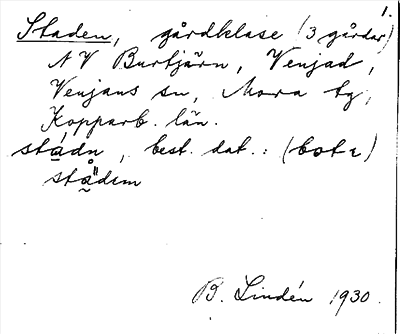 1.
Staden, gårdklase (3 gårdar)
NV Burtjärn, Venjad,
Venjans sn, Mora tg,
Kopparb. län.
stádn, best. dat.: (bot ɩ)
stå̰̋dem
B. Lindén 1930.